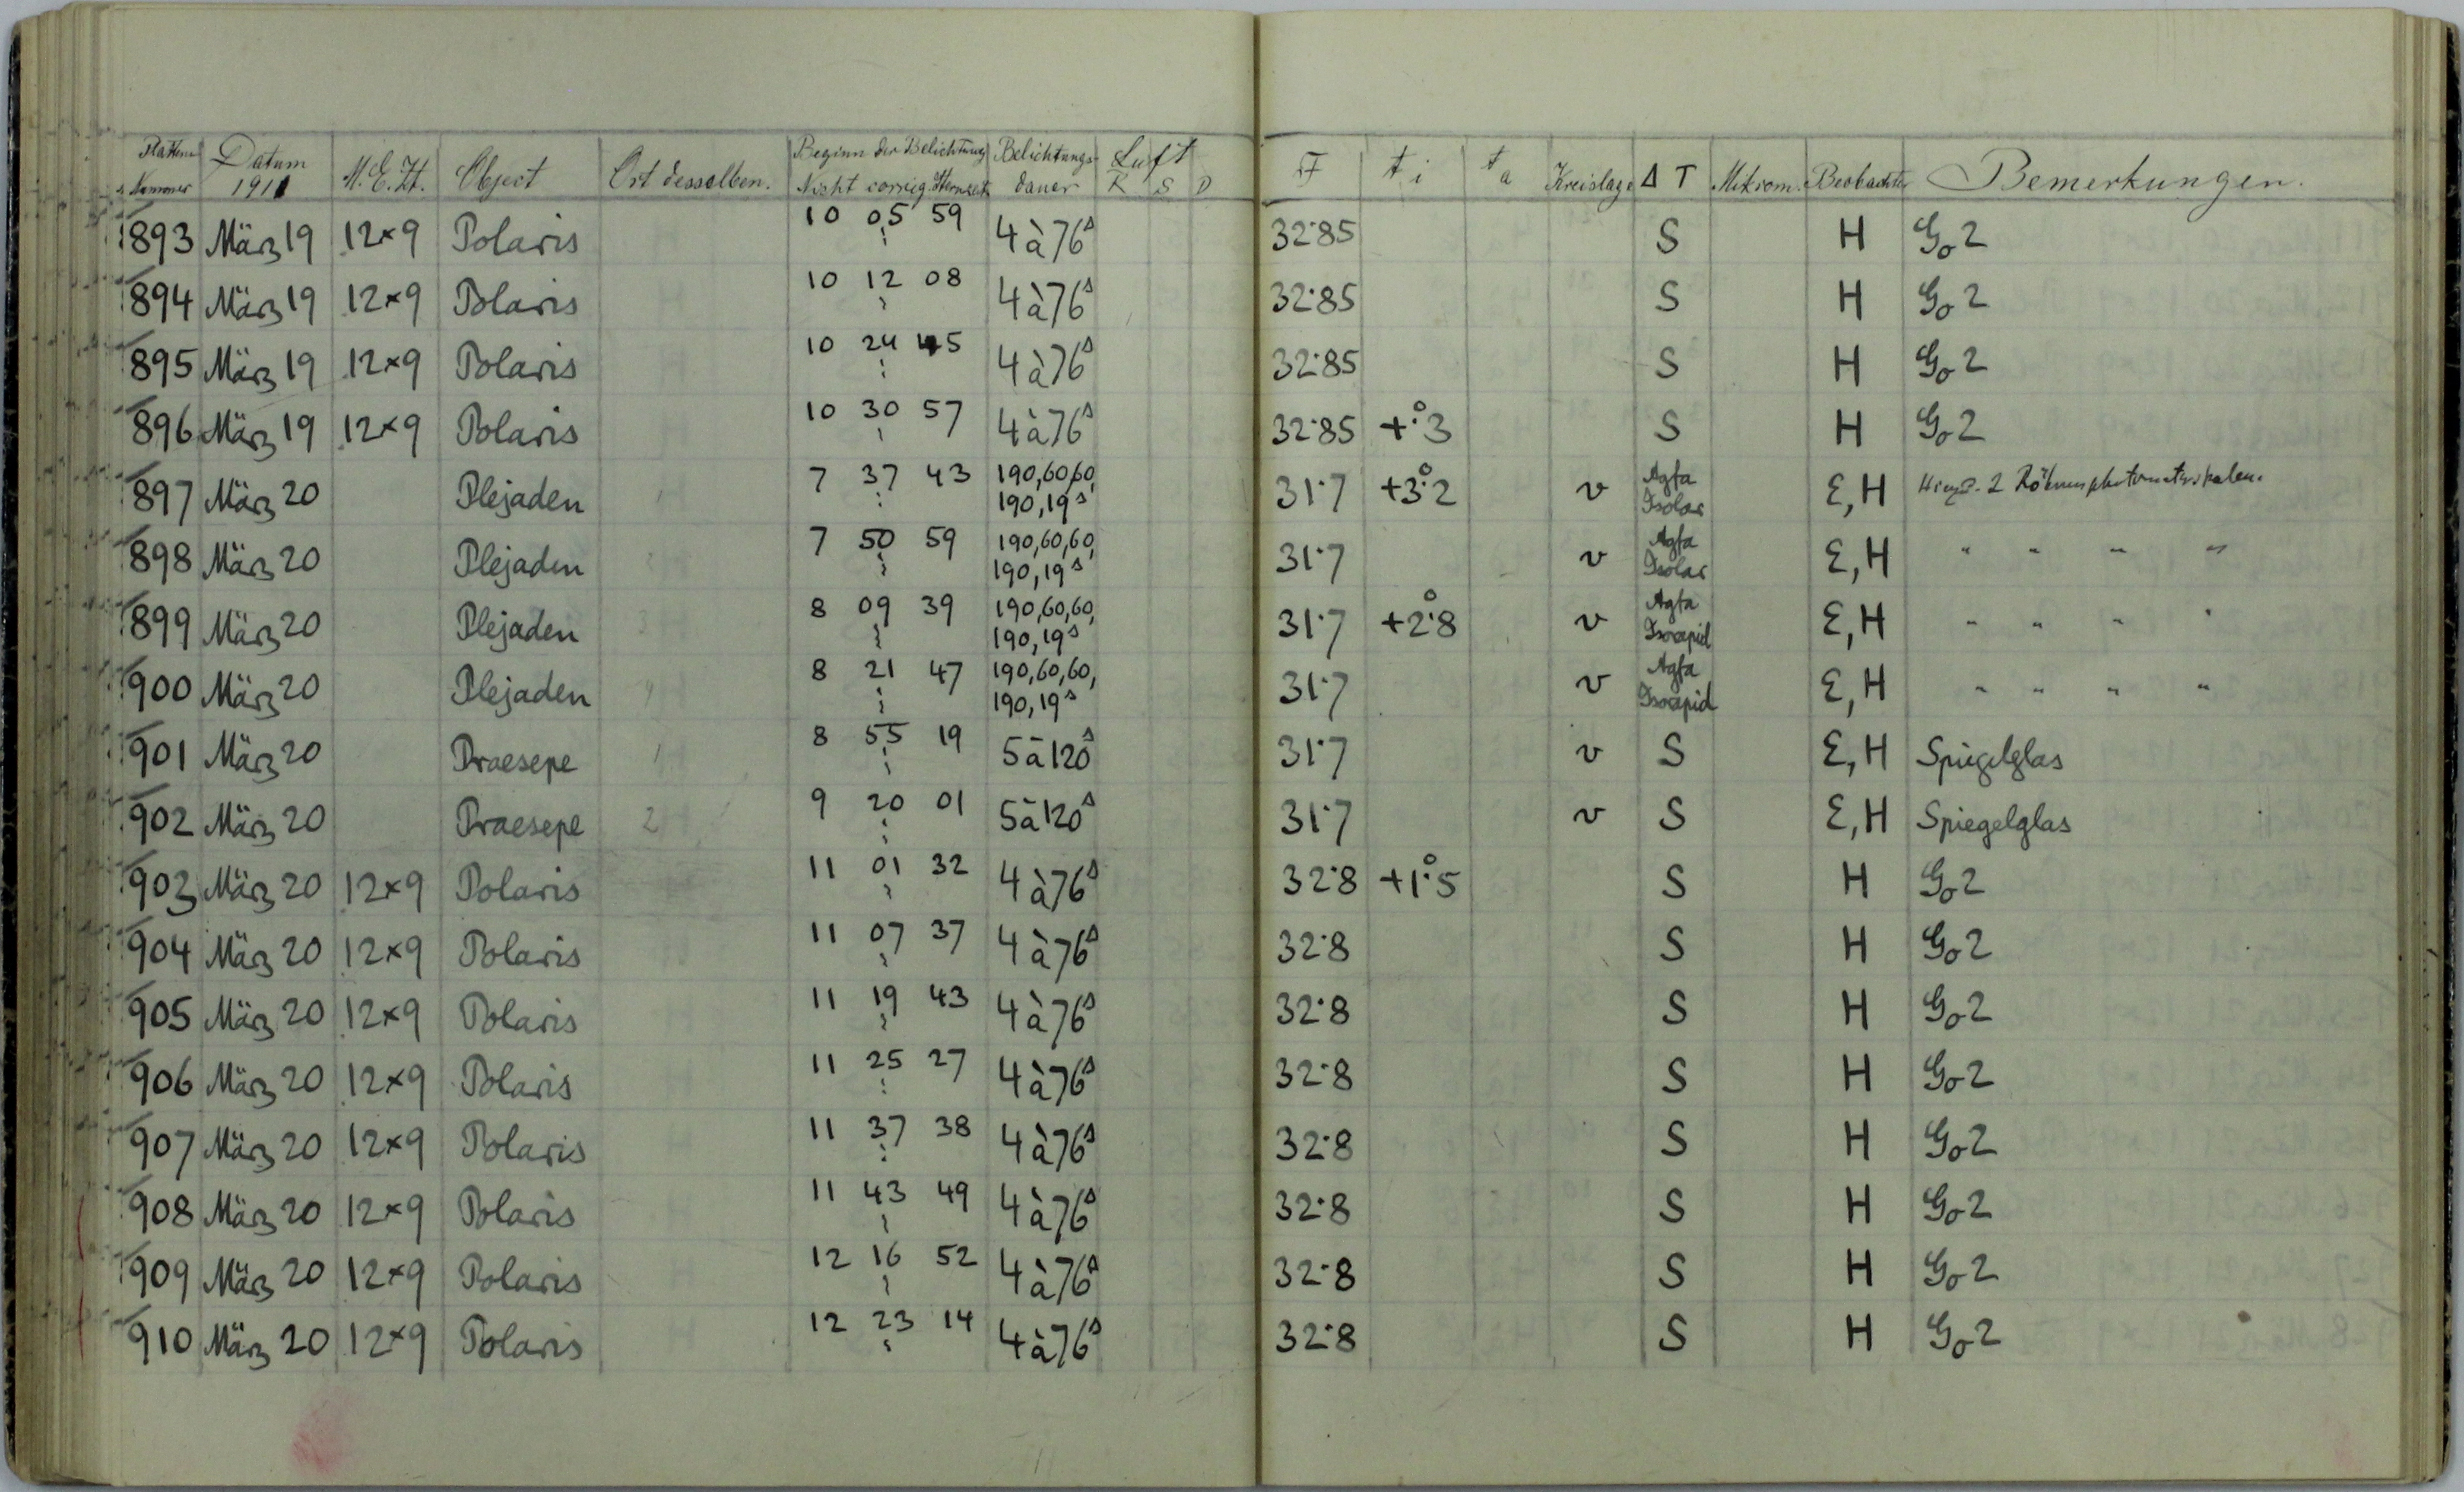 Platten Nummer Datum 1911 M.E.Zt. Object Ort desselben. Beginn der Belichtung Nicht corrig. Sternzeit Belichtungs- dauer Luft R S D F t i t a Kreislage Δ T Mikrom. Beobachter Bemerkungen.
893 März 19 12×9 Polaris 10 05 59 4 à 76s 32.85 S H Go 2
894 März 19 12×9 Polaris 10 12 08 4 à 76s 32.85 S H Go 2
895 März 19 12×9 Polaris 10 24 45 4 à 76s 32.85 S H Go 2
896 März 19 12×9 Polaris 10 30 57 4 à 76s 32.85 +°.3 S H Go 2
897 März 20 Plejaden 1 7 37 43 190,60,60, 190,19s 31.7 +3°.2 v Agfa Isolar E,H 2
898 März 20 Plejaden 2 7 50 59 190,60,60, 190,19s 31.7 v Agfa Isolar E,H " " " "
899 März 20 Plejaden 3 8 09 39 190,60,60, 190,19s 31.7 +2°.8 v Agfa Isorapid E,H " " " "
900 März 20 Plejaden 4 8 21 47 190,60,60, 190,19s 31.7 v Agfa Isorapid E,H " " " "
901 März 20 Praesepe 1 8 55 19 5 à 120s 31.7 v S E,H Spiegelglas
902 März 20 Praesepe 2 9 20 01 5 à 120s 31.7 v S E,H Spiegelglas
903 März 20 12×9 Polaris 11 01 32 4 à 76s 32.8 +1°.5 S H Go 2
904 März 20 12×9 Polaris 11 07 37 4 à 76s 32.8 S H Go 2
905 März 20 12×9 Polaris 11 19 43 4 à 76s 32.8 S H Go 2
906 März 20 12×9 Polaris 11 25 27 4 à 76s 32.8 S H Go 2
907 März 20 12×9 Polaris 11 37 38 4 à 76s 32.8 S H Go 2
908 März 20 12×9 Polaris 11 43 49 4 à 76s 32.8 S H Go 2
909 März 20 12×9 Polaris 12 16 52 4 à 76s 32.8 S H Go 2
910 März 20 12×9 Polaris 12 23 14 4 à 76s 32.8 S H Go 2